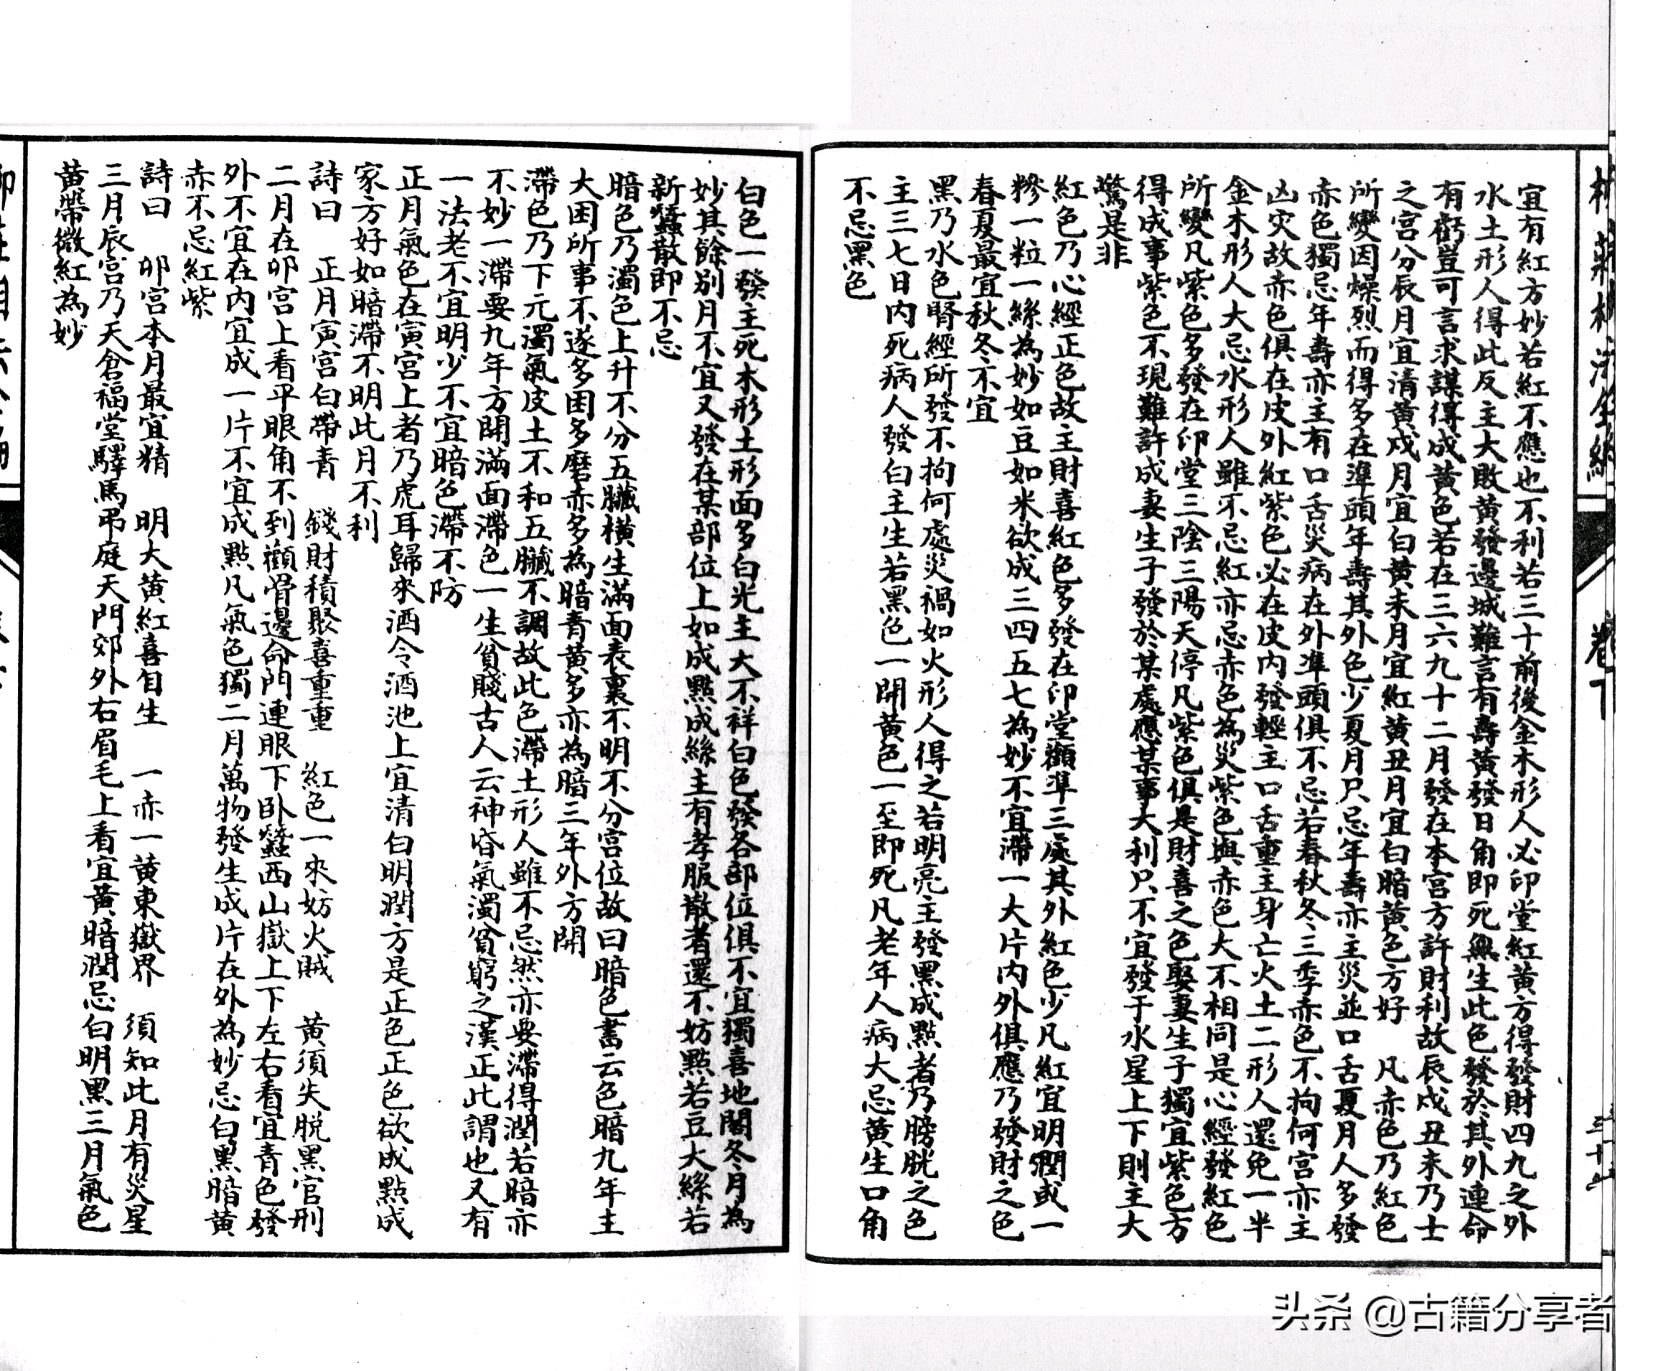 柳莊相法全編
卷下
宜有紅方妙若紅不應也不利若三十前後金木形人必印堂紅黃方得發財四九之外
水土形人得此反主大敗黃發邊城難言有壽黃發日角即死無生此色發於其外連命
有虧豈可言求謀得成黃色若在三六九十二月發在本宮方許財利故辰戌丑未乃士
之宮分辰月宜清黃戌月宜白黃未月宜紅黃丑月宜白暗黃色方好 凡赤色乃紅色
所變因燥烈而得多在準頭年壽其外色少夏月只忌年壽亦主災並口舌夏月人多發
赤色獨忌年壽亦主有口舌災病在外準頭俱不忌若春秋冬三季赤色不拘何宮亦主
凶災故赤色俱在皮外紅紫色必在皮內發輕主口舌重主身亡火土二形人還免一半
金木形人大忌水形人雖不忌紅亦忌赤色為災紫色與赤色大不相同是心經發紅色
所變凡紫色多發在印堂三陰三陽天停凡紫色俱是財喜之色娶妻生子獨宜紫色方
得成事紫色不現難許成妻生子發於某處應某事大利只不宜發于水星上下則主大
驚是非
紅色乃心經正色故主財喜紅色多發在印堂顴準三處其外紅色少凡紅宜明潤或一
糝一粒一絲為妙如豆如米欲成三四五七為妙不宜滯一大片內外俱應乃發財之色
春夏最宜秋冬不宜
黑乃水色腎經所發不拘何處災禍如火形人得之若明亮主發黑成點者乃膀胱之色
主三七日內死病人發白主生若黑色一開黃色一至即死凡老年人病大忌黃生口角
不忌黑色
白色一發主死木形土形面多白光主大不祥白色發各部位俱不宜獨喜地閣冬月為
妙其餘別月不宜又發在某部位上如成點成絲主有孝服散者還不妨點若豆大絲若
新蠶散即不忌
暗色乃濁色上升不分五臟橫生滿面表裏不明不分宮位故曰暗色書云色暗九年主
大困所事不遂多困多磨赤多為暗青黃多亦為暗三年外方開
滯色乃下元濁氣皮土不和五臟不調故此色滯土形人雖不忌然亦要滯得潤若暗亦
不妙一滯要九年方開滿面滯色一生貧賤古人云神昏氣濁貧窮之漢正此謂也又有
一法老不宜明少不宜暗色滯不防
正月氣色在寅宮上者乃虎耳歸來酒令酒池上宜清白明潤方是正色正色欲成點成
家方好如暗滯不明此月不利
詩曰 正月寅宮白帶青 錢財積聚喜重重 紅色一來妨火賊 黃須失脫黑官刑
二月在卯宮上看平眼角不到顴骨邊命門連眼下臥蠶西山嶽上下左右看宜青色發
外不宜在內宜成一片不宜成點凡氣色獨二月萬物發生成片在外為妙忌白黑暗黃
赤不忌紅紫
詩曰 卯宮本月最宜精 明大黃紅喜自生 一赤一黃東嶽界 須知此月有災星
三月辰宮乃天倉福堂驛馬弔庭天門郊外右眉毛上看宜黃暗潤忌白明黑三月氣色
黃帶微紅為妙
头条 @古籍分享者